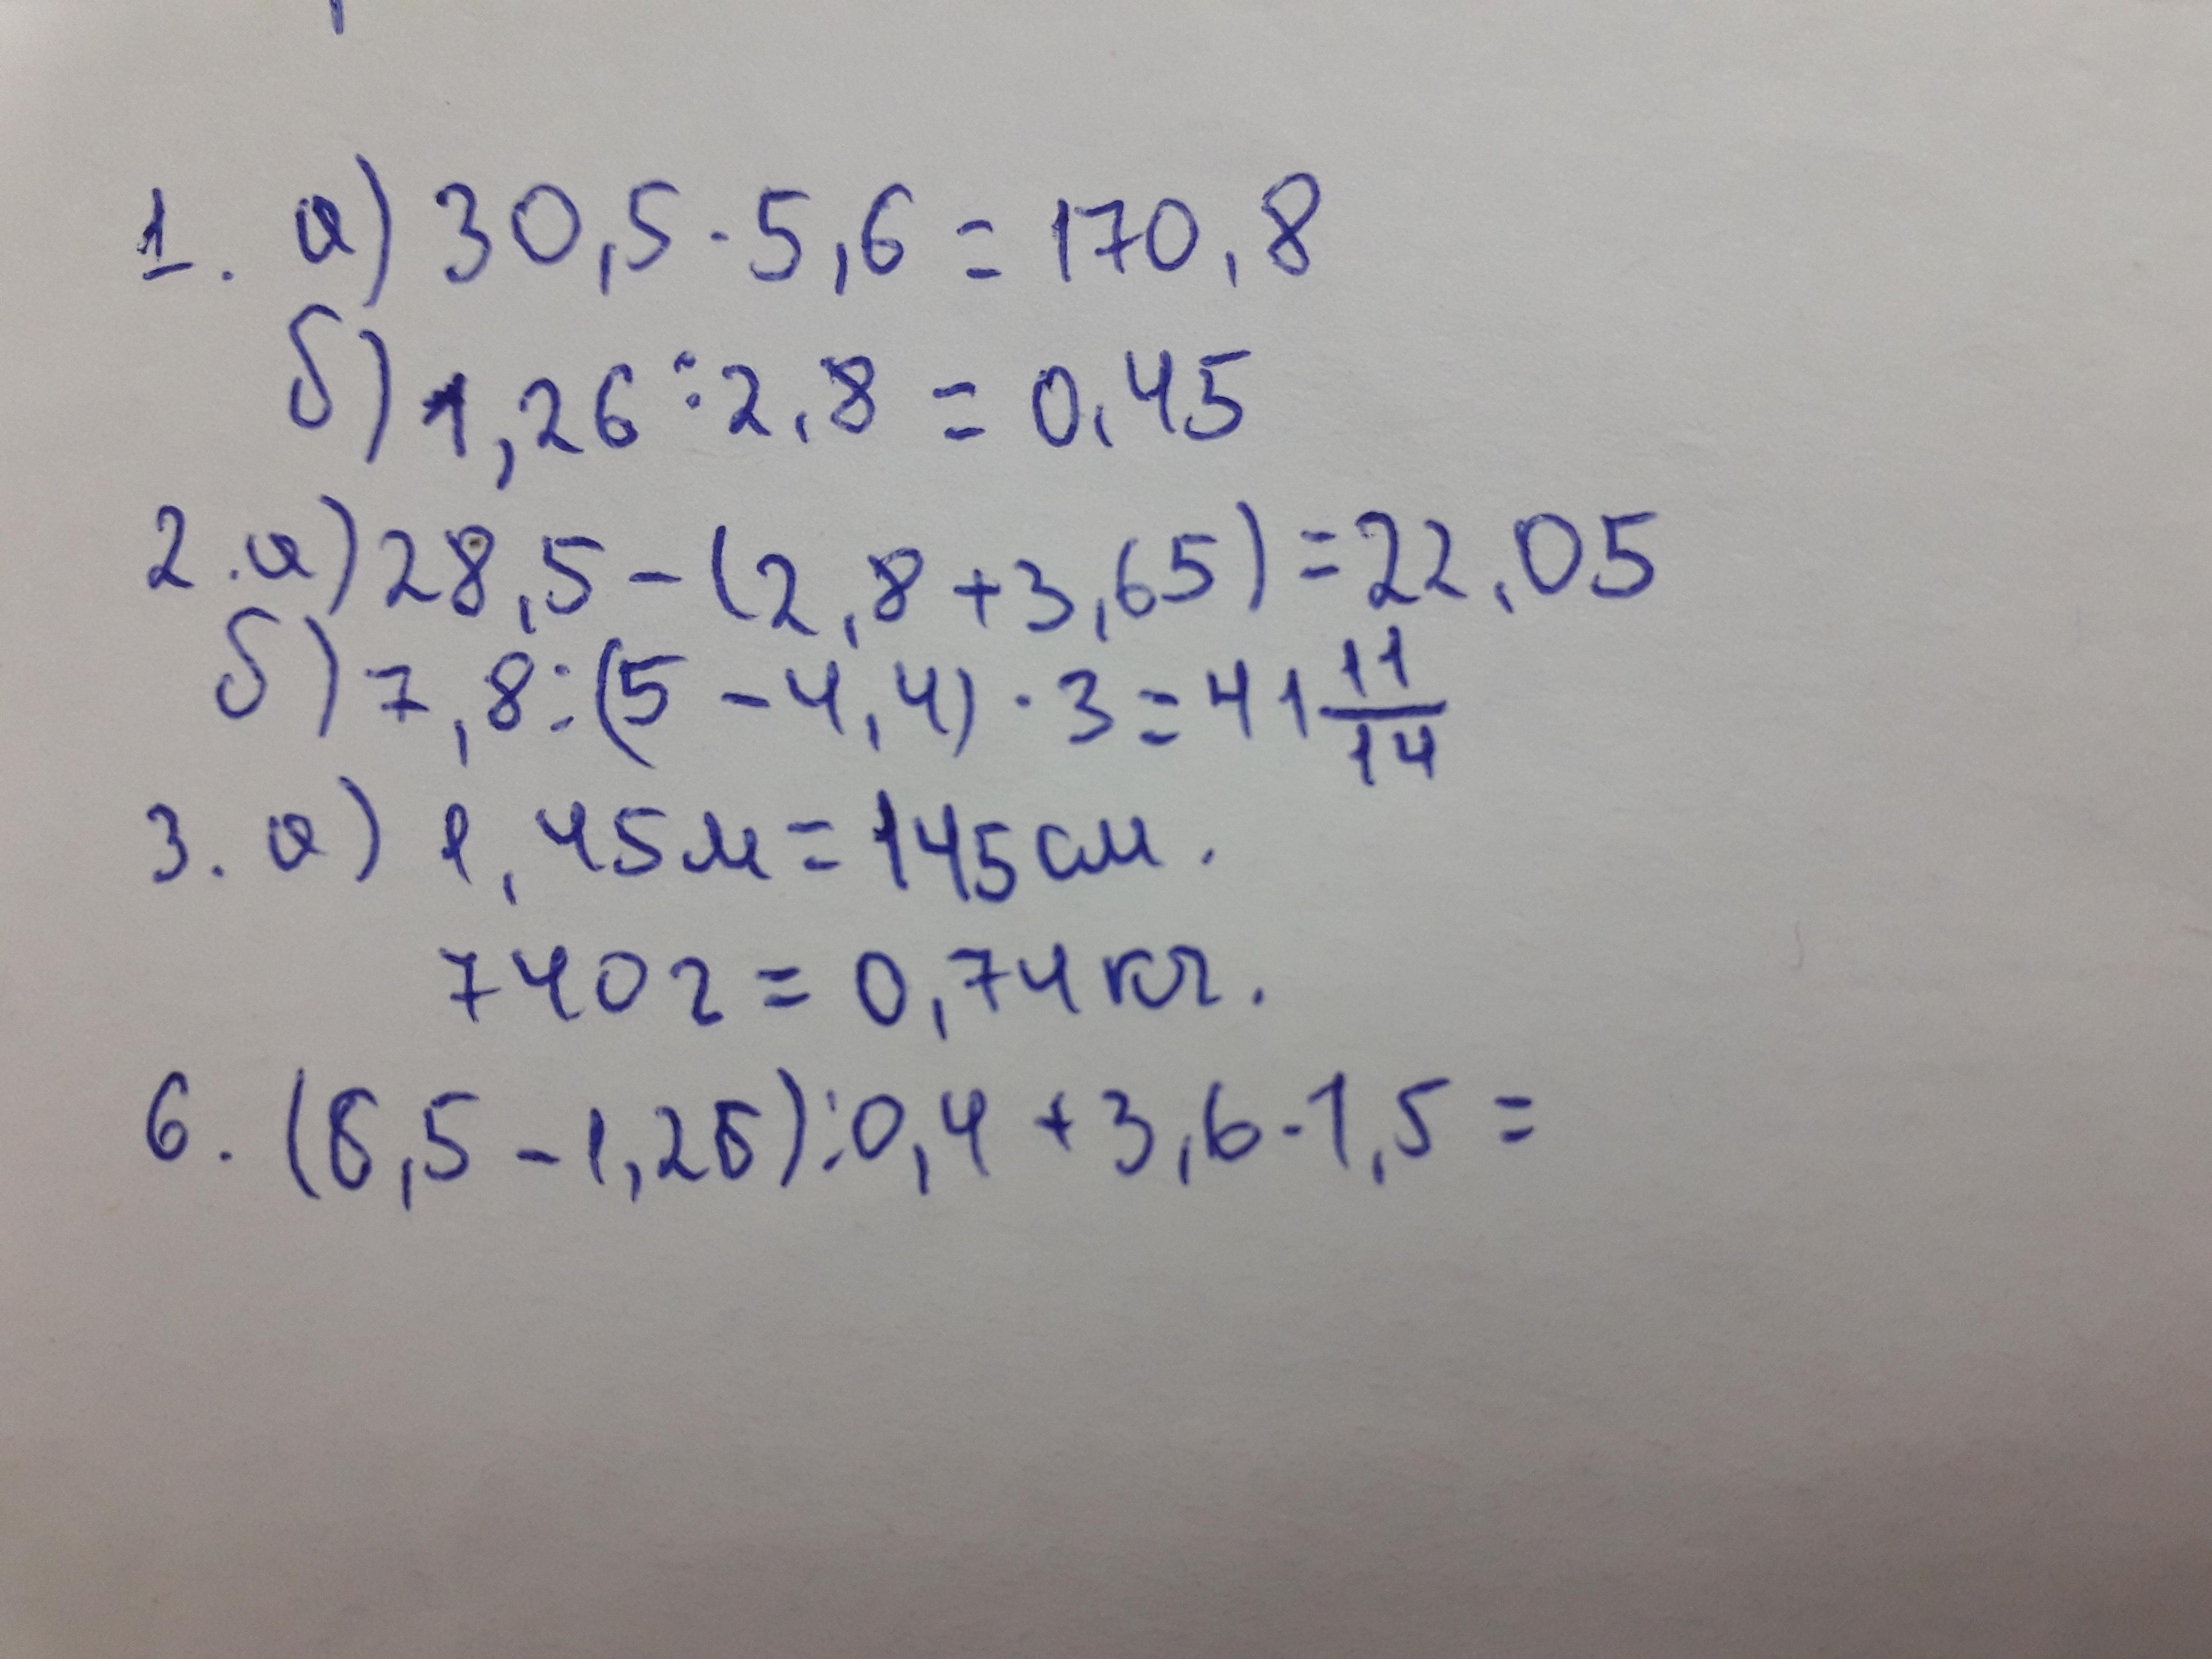 1. а) 30,5 · 5,6 = 170,8
б) 1,26 : 2,8 = 0,45
2. а) 28,5 - (2,8 + 3,65) = 22,05
б) 7,8 : (5 - 4,4) · 3 = 41 11/14
3. а) 1,45 м = 145 см.
740 г = 0,74 кг.
6. (6,5 - 1,26) : 0,4 + 3,6 · 1,5 =